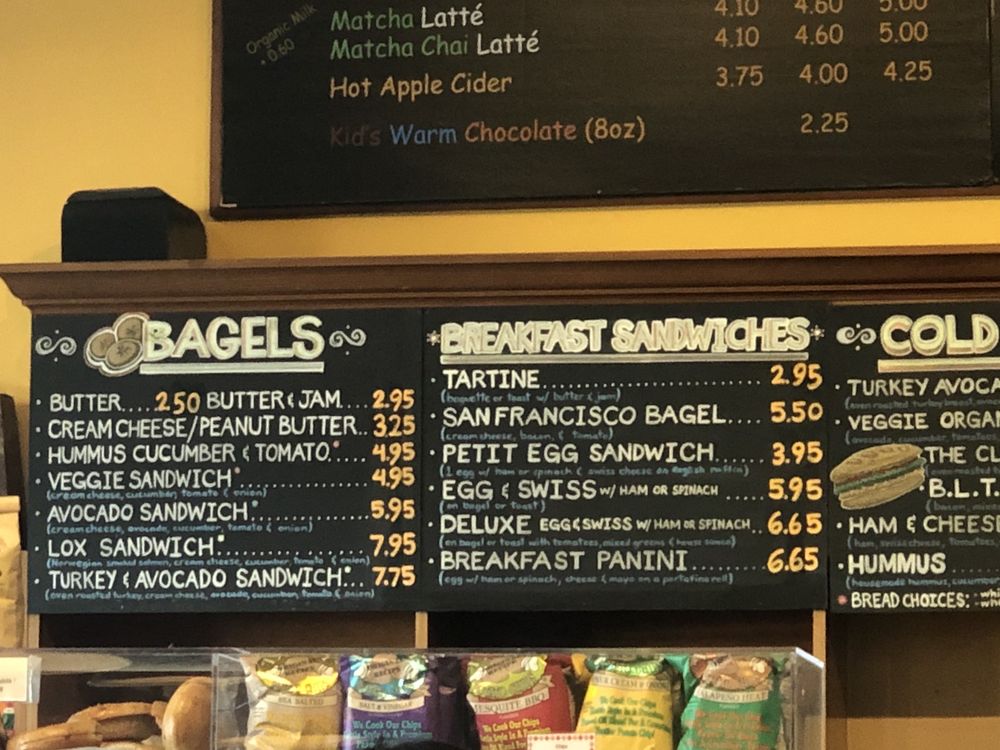 Organic Milk
+ 0.60
Matcha Latté 4.10 4.60 5.00
Matcha Chai Latté 4.10 4.60 5.00
Hot Apple Cider 3.75 4.00 4.25
Kid's Warm Chocolate (8oz) 2.25
BAGELS
• BUTTER....2.50 BUTTER & JAM....2.95
• CREAM CHEESE/PEANUT BUTTER..3.25
• HUMMUS CUCUMBER & TOMATO*...4.95
• VEGGIE SANDWICH* 4.95
(cream cheese, cucumber, tomato & onion)
• AVOCADO SANDWICH* 5.95
(cream cheese, avocado, cucumber, tomato & onion)
• LOX SANDWICH*...............7.95
(Norwegian smoked salmon, cream cheese, cucumber, tomato & onion)
• TURKEY & AVOCADO SANDWICH*...7.75
(oven roasted turkey, cream cheese, avocado, cucumber, tomato & onion)
*BREAKFAST SANDWICHES*
• TARTINE.............................2.95
(baguette or toast w/ butter & jam)
• SAN FRANCISCO BAGEL....5.50
(cream cheese, bacon, & tomato)
• PETIT EGG SANDWICH.......3.95
(1 egg w/ ham or spinach & swiss cheese on english muffin)
• EGG & SWISS W/ HAM OR SPINACH .....5.95
(on bagel or toast)
• DELUXE EGG & SWISS W/ HAM OR SPINACH..6.65
(on bagel or toast with tomatoes, mixed greens & house sauce)
• BREAKFAST PANINI 6.65
(egg w/ ham or spinach, cheese & mayo on a portofino roll)
COLD
• TURKEY AVOCA
(oven roasted turkey breast,
• VEGGIE ORGA
(avocado, cucumber, tomatoes
• THE CL
• B.L.T.
(bacon,
• HAM & CHEES
(ham, swiss cheese, tomatoes
• HUMMUS
(housemade hummus, cucumber
* BREAD CHOICES:
SEA SALTED
We Cook Our Chips
SALT & VINEGAR
We Cook Our Chips
Little Style In A Premium
MESQUITE BBQ
We Cook Our Chips
SOUR CREAM & ONION
We Cook Our Chips
JALAPEÑO HEAT
We Cook Our Chips